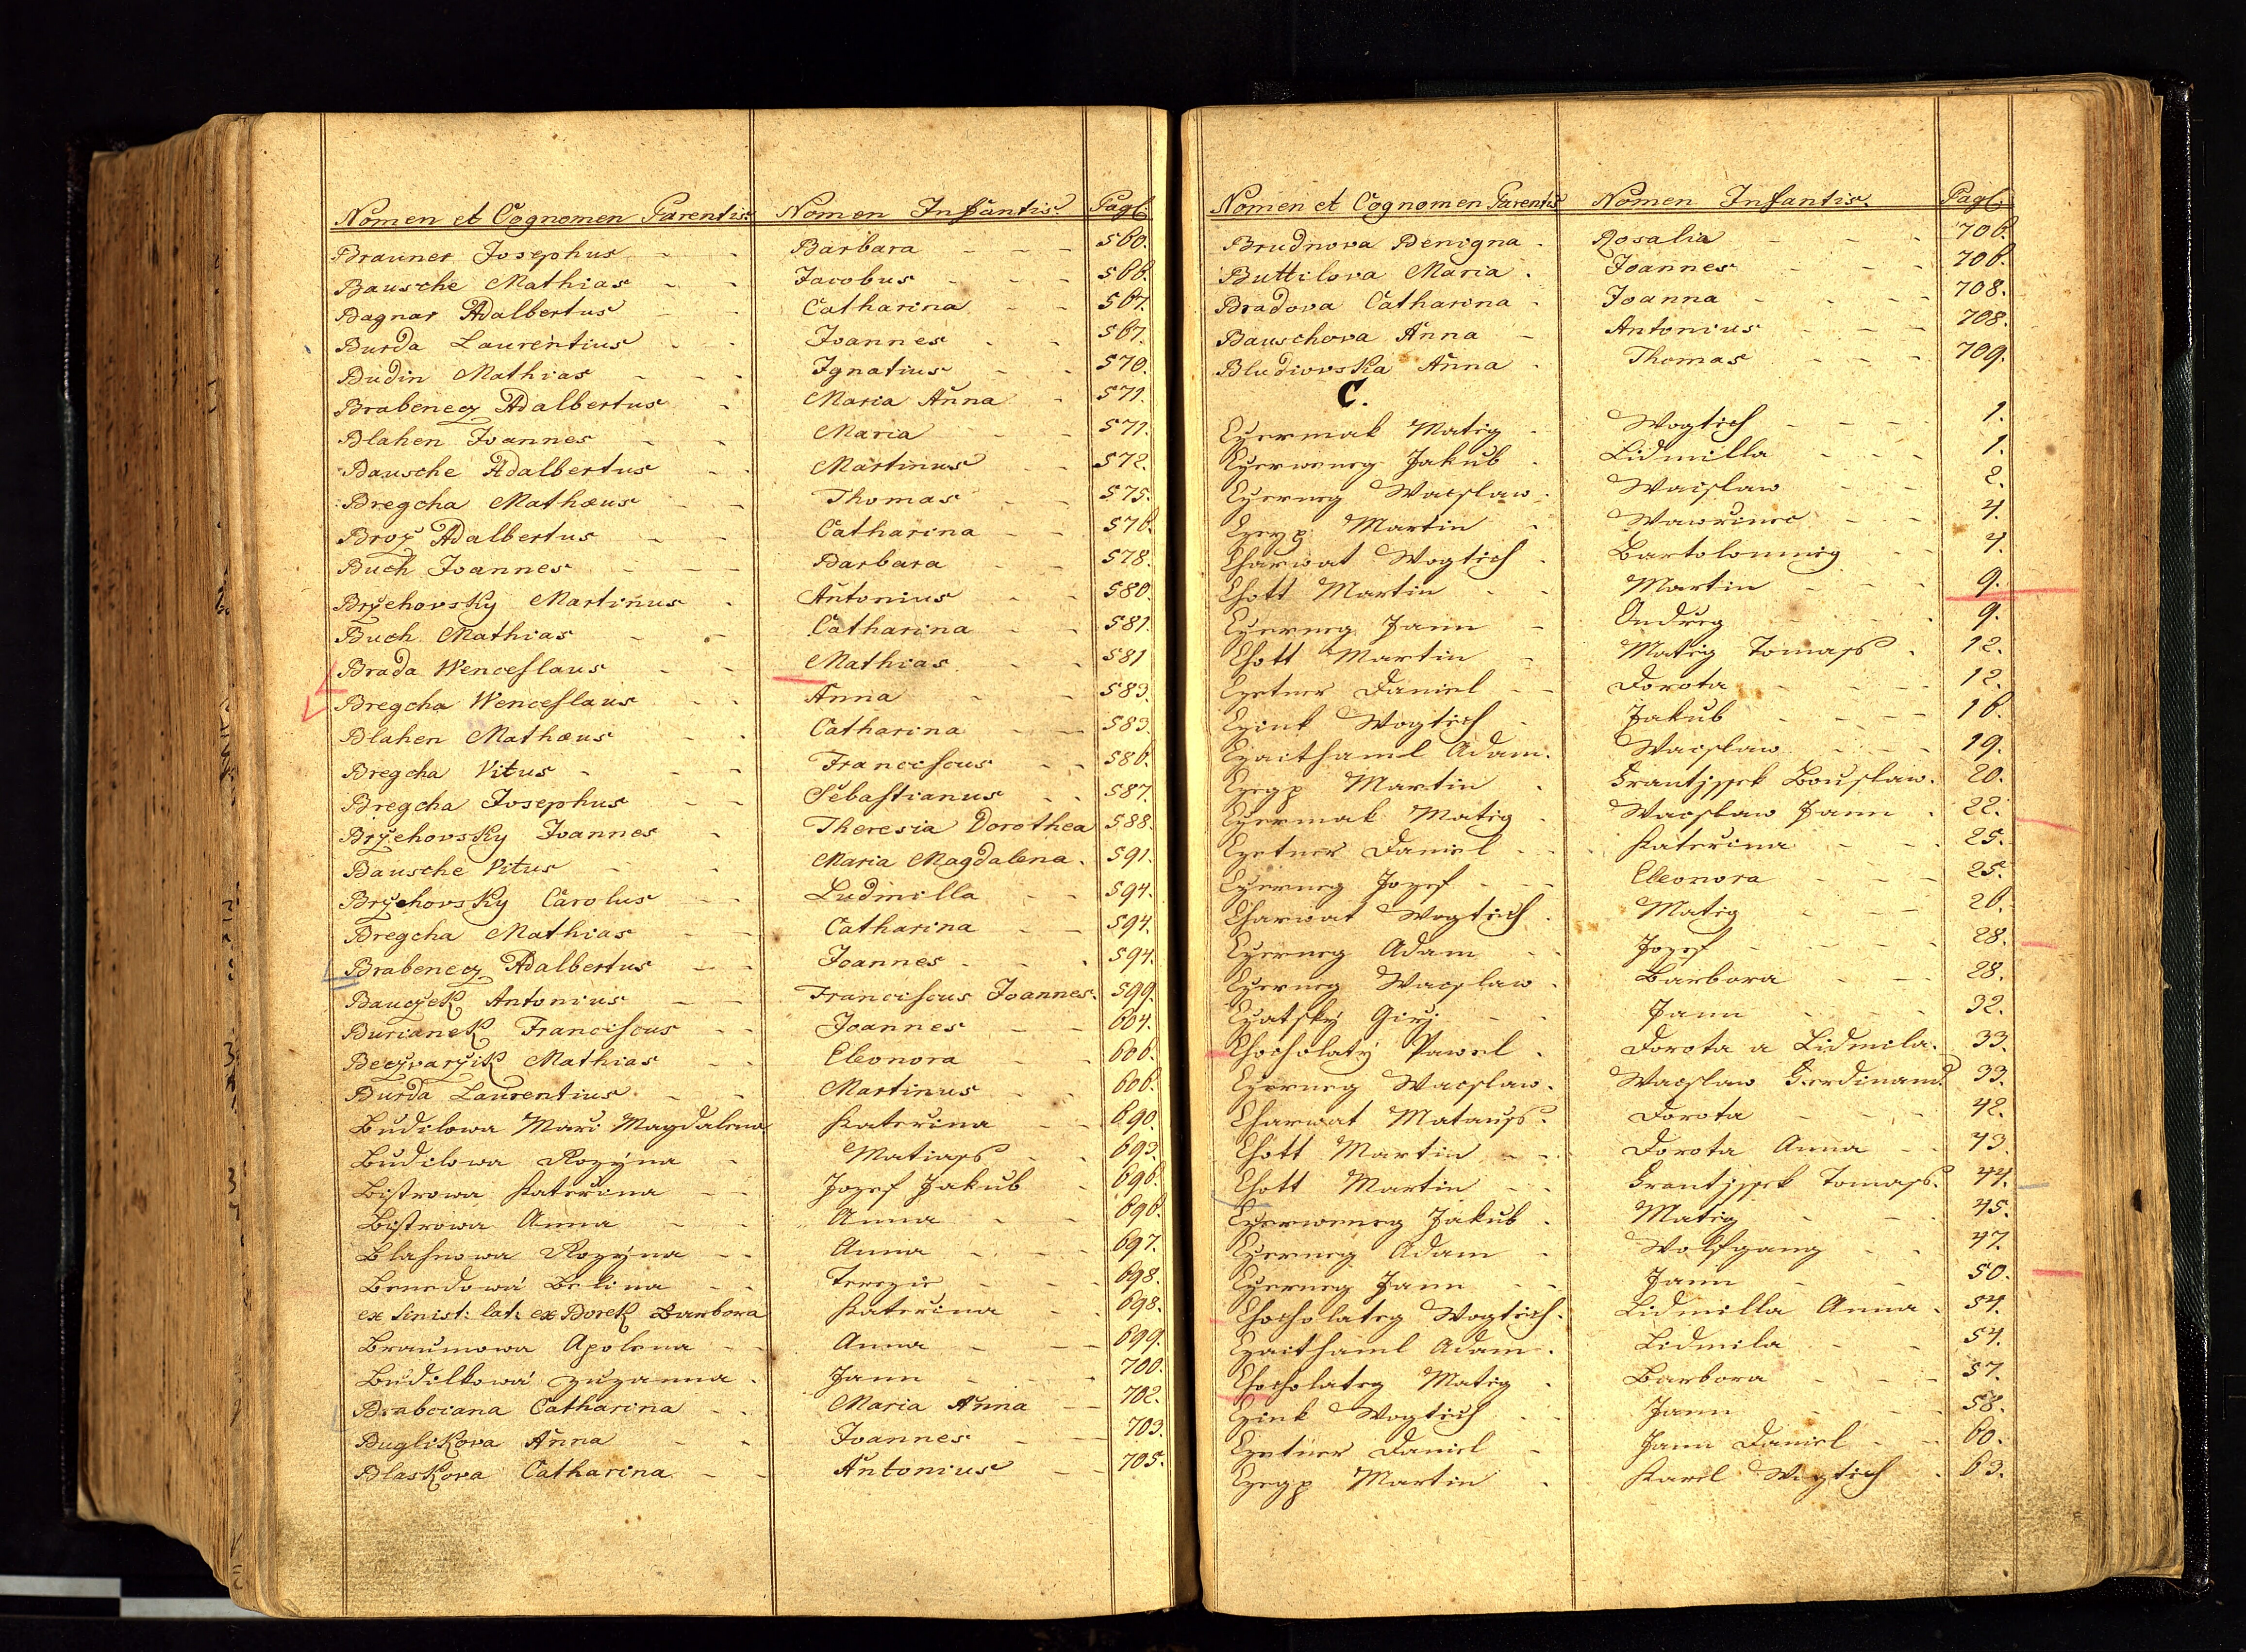 Nomen et Cognomen Parentis Nomen Infantis Pagī
Brauner Josephus Barbara 560.
Bausche Mathias Jacobus 566.
Bagnar Adalbertus Catharina 567.
Burda Laurentius Joannes 567.
Budin Mathias Ignatius 570.
Brabenecz Adalbertus Maria Anna 571.
Blahen Joannes Maria 571.
Bausche Adalbertus Martinus 572.
Bregcha Mathæus Thomas 575.
Broz Adalbertus Catharina 576.
Buch Joannes Barbara 578.
Brÿchovsky Martinus Antonius 580.
Buch Mathias Catharina 581.
Brada Wenceslaus Mathias 581
Bregcha Wenceslaus Anna 583.
Blahen Mathæus Catharina 583.
Bregcha Vitus Franciscus 586.
Bregcha Josephus Sebastianus 587.
Brÿchovsky Joannes Theresia Dorothea 588.
Bausche Vitus Maria Magdalena 591.
Brÿchovsky Carolus Ludmilla 594.
Bregcha Mathias Catharina 594.
Brabenecz Adalbertus Joannes 594.
Bauczek Antonius Franciscus Joannes 599.
Burianek Franciscus Joannes 604.
Beczvarzik Mathias Eleonora 606.
Burda Laurentius Martinus 606.
Budilowa Mari Magdalena Kateržina 690.
Budilowa Rozÿna Matiass 693.
Bistrowa Kateržina Jozef Jakub 696.
Bistrowa Anna Anna 696.
Blahnowa Rozÿna Anna 697.
Benedowá Belina Terezie 698.
ex sinist: lat: ex Borek Barbora Kateržina 698.
Braumowa Apolena Anna 699.
Budilkowá Zuzanna Jann 700.
Brabciana Catharina Maria Anna 702.
Buglikova Anna Joannes 703.
Blaskova Catharina Antonius 705.
Nomen et Cognomen Parentis Nomen Infantis. Pagī
Brudnova Benigna Rosalia 706.
Buttilova Maria Joannes 706.
Bradova Catharina Joanna 708.
Bauschova Anna Antonius 708.
Bludiovska Anna Thomas 709.
C.
Czermak Matig Wogtich 1.
Czerweneg Jakub Lidmilla 1.
Czerneg Wacslaw Wacslaw 2.
Czegp Martin Wawržinec 4.
Charwat Wogtich Bartolommeg 4.
Chott Martin Martin 9.
Czerneg Jann Ondreg 9.
Chott Martin Matig Tomass 12.
Czetner Daniel Dorota 12.
Czink Wogtich Jakub 16.
Czaithaml Adam Wacslaw 19.
Czegp Martin Frantissek Bouslaw. 20.
Czermak Matig Wacslaw Jann 22.
Czetner Daniel Kateržina 25.
Czerneg Jozef Eleonora 25.
Charwat Wogtich Matig 26.
Czerneg Adam Jozef 28.
Czerneg Wacslaw Barbora 28.
Czatsky Giržj Jann 32.
Chocholatÿ Pawel Dorota a Lidmila. 33.
Czerneg Wacslaw. Wacslaw Ferdinand 33.
Charwat Matauss. Dorota 42.
Chott Martin Dorota Anna 43.
Chott Martin Frantissek Tomass. 44.
Czerweneg Jakub Matig 45.
Czerneg Adam Wolfgang 47.
Czerneg Jann Jann 50.
Chocholateg Wogtich. Lidmilla Anna 54.
Czaithaml Adam Lidmila 54.
Chocholateg Matig Barbora 57.
Czink Wogtich Jann 58.
Czetner Daniel Jann Daniel 60.
Czegp Martin Karel Wogtich 63.